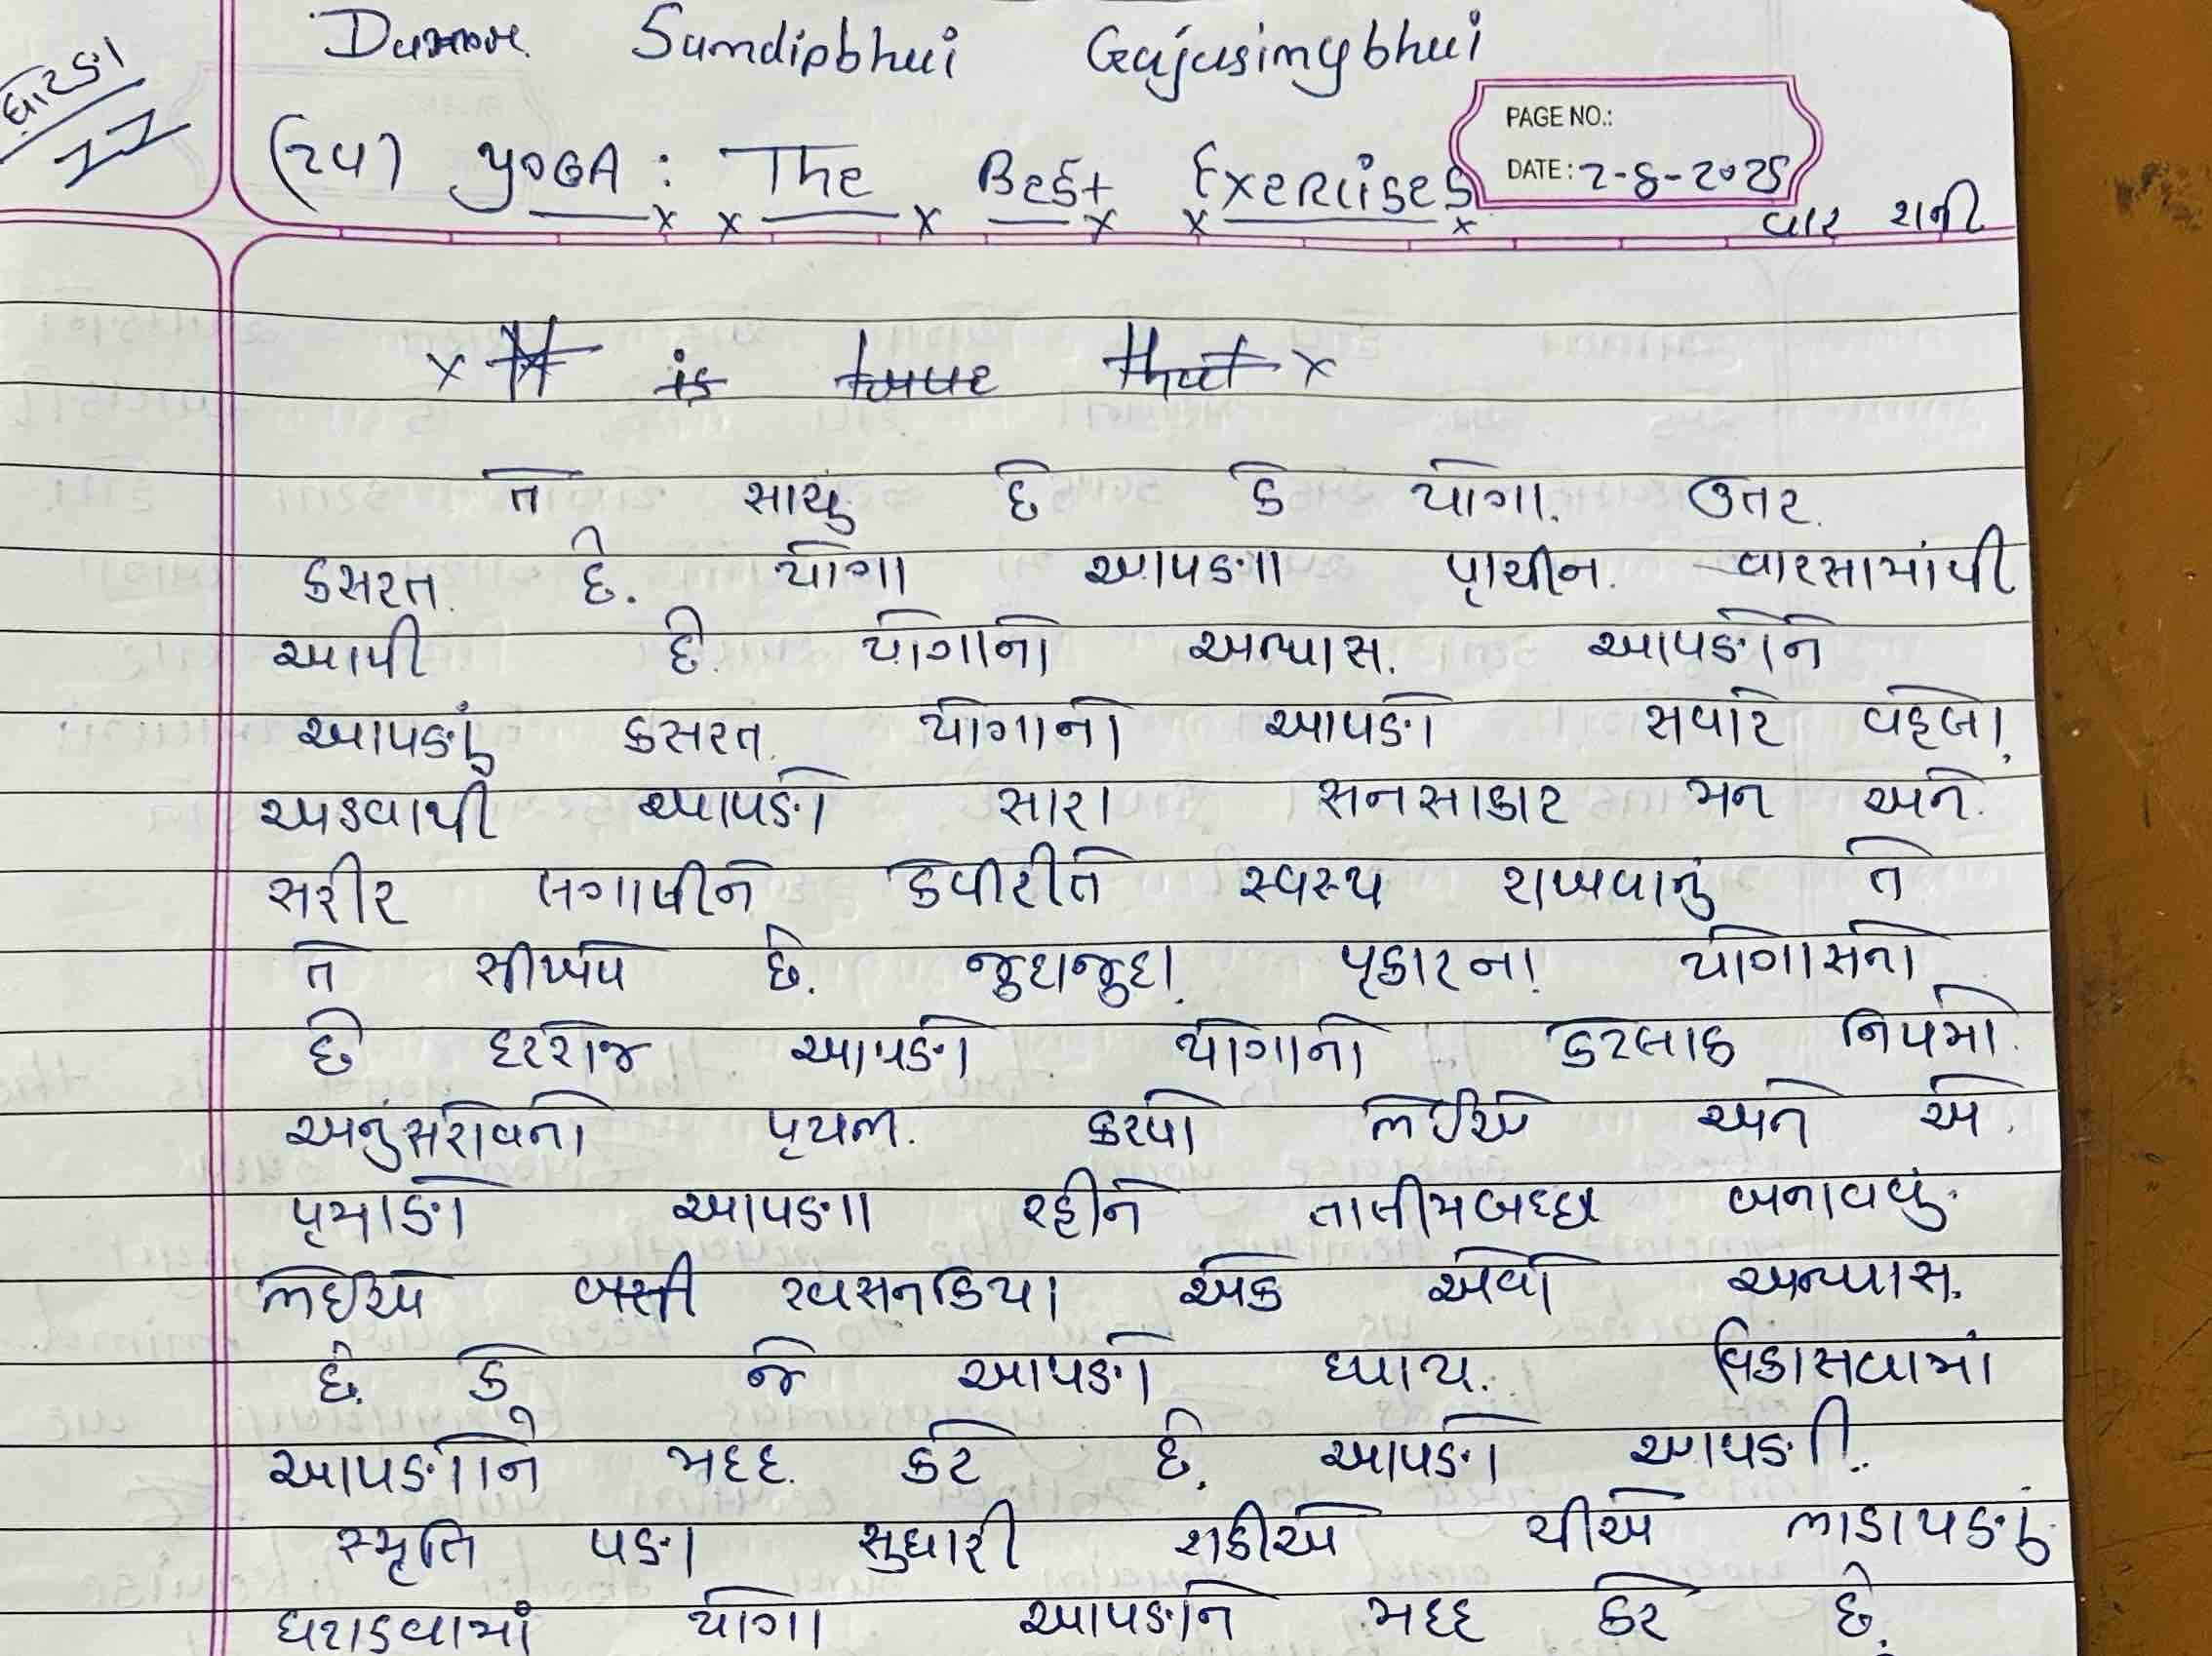 Damor Sandipbhai Gajasingbhai
ધો૨ડા
11
PAGE NO.:
(૨૫) YOGA : The Best Exercises
DATE: ૨-૮-૨૦૨૫
વાર શની
It is true that
તે સાચું છે કે યોગા. ઉતર.
કસરત. છે. યોગા આપણા પ્રાચીન. વારસામાંથી
આપી છે. યોગાનો અભ્યાસ. આપણોને
આપણું કસરત. યોગાનો આપણો સવારે વહેલો.
અડવાથી આપણે સારા સનસાકાર મન અને.
સરીર લગાવીને કેવીરીતે સ્વસ્થ રાખવાનું તે
તે સીખવે છે. જુદાજુદા. પ્રકારના. યોગાસનો
છે દરરોજ આપણે યોગાનો કેટલાક નિયમો.
અનુંસરોવનો પ્રયત્ન. કરવો જોઈએ અને એ.
પ્રમાણે આપણા રહીને તાલીમબધ્ધ બનાવવું.
જોઈએ બસ્તી સ્વસનક્રિયા એક એવો અભ્યાસ.
છે. કે જે આપણો ધ્યાય. વિકાસવામાં
આપણોને મદદ. કરે છે. આપણે આપણી.
સ્મૃતિ પણ સુધારી શકીએ થીએ જાડાપણું.
ઘટાડવામાં યોગા આપણને મદદ કરે છે.